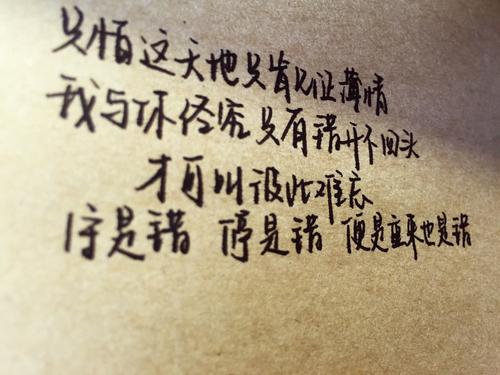 只怕这天地只肯见证薄情
我与你终究只有错开不回头
才可叫彼此难忘
行是错 停是错 便是重来也是错